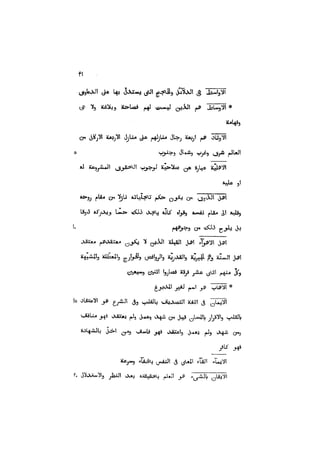 ٤١
الاواسط هى الدلائل والحجج التى يستدلّ بها على الدعاوى
* الاوساط هم الذين ليست لهم فصاحة وبلاغة ولا عىّ
وفهاهة
الاوتاد هم اربعة رجال منازلهم على منازل الاربعة الاركان من
العالم شرق وغرب وشمال وجنوب
٥
الاهليّة عبارة عن صلاحيّة لوجوب الحقوق المشروعة له
او عليه
اهل الذوق من يكون حكم تجلّياته نازلا من مقام روحه
وقلبه الى مقام نفسه وقواه كانّه يجد ذلك حسّا ويدركه ذوقا
بل يلوح ذلك من وجوههم
١٠
اهل الاهواء اهل القبلة الذين لا يكون معتقدهم معتقد
اهل السنّة وهم الجبريّة والقدريّة والروافض والخوارج والمعطّلة والمشبّهة
وكلّ منهم اثنى عشر فرقة فصاروا اثنين وسبعين
* الاهاب هو اسم لغير المدبوغ
الايمان فى اللغة التصديق بالقلب وفى الشرع هو الاعتقاد
١٥
بالقلب والاقرار باللسان قيل من شهد وعمل ولم يعتقد فهو منافق
ومن شهد ولم يعمل واعتقد فهو فاسق ومن اخلّ بالشهادة
فهو كافر
الايماء القاء المعنى فى النفس بخفاء وسرعة
الايقان بالشىء هو العلم بحقيقته بعد النظر والاستدلال
٢٠